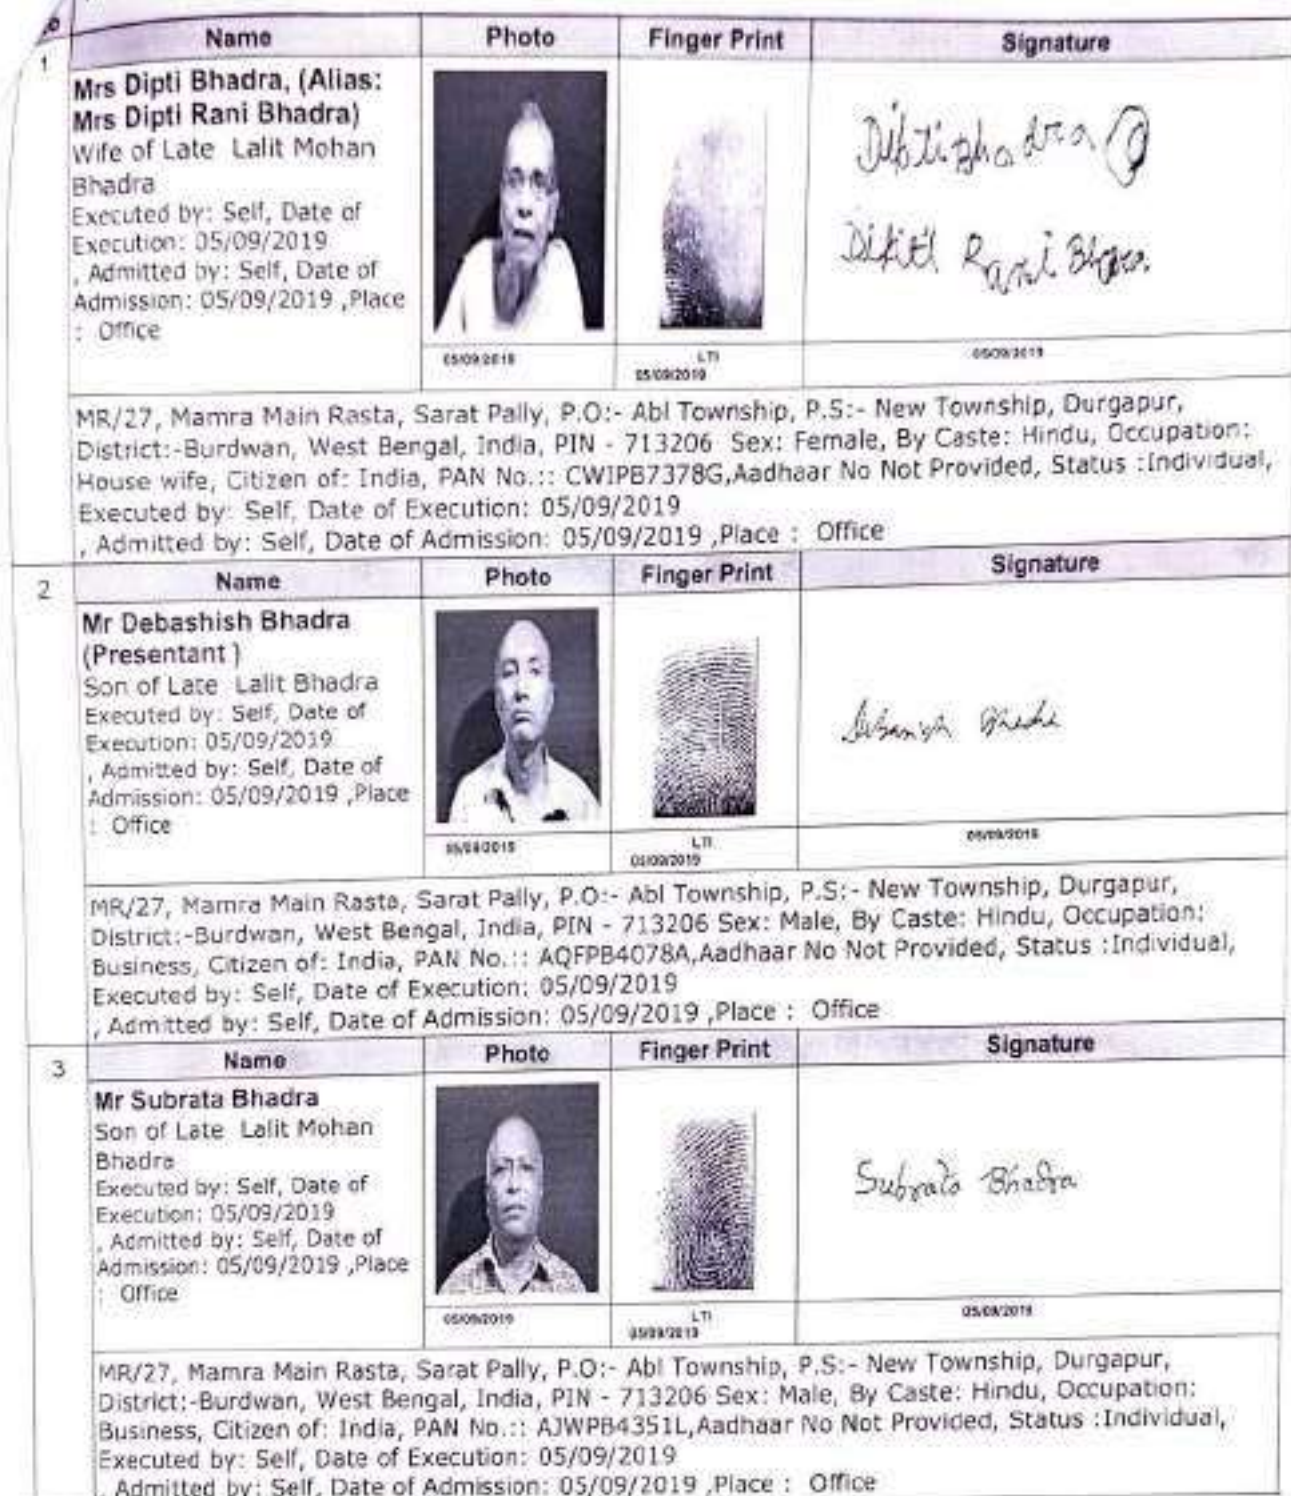 Name Photo Finger Print Signature
1
Mrs Dipti Bhadra, (Alias:
Mrs Dipti Rani Bhadra)
Wife of Late Lalit Mohan
Bhadra
Executed by: Self, Date of
Execution: 05/09/2019
, Admitted by: Self, Date of
Admission: 05/09/2019 ,Place
: Office
Rani
05/09/2019 LTI 05/09/2019
05/09/2019
MR/27, Mamra Main Rasta, Sarat Pally, P.O:- Abl Township, P.S:- New Township, Durgapur,
District:-Burdwan, West Bengal, India, PIN - 713206 Sex: Female, By Caste: Hindu, Occupation:
House wife, Citizen of: India, PAN No.:: CWIPB7378G,Aadhaar No Not Provided, Status :Individual,
Executed by: Self, Date of Execution: 05/09/2019
, Admitted by: Self, Date of Admission: 05/09/2019 ,Place : Office
2
Name Photo Finger Print Signature
Mr Debashish Bhadra
(Presentant )
Son of Late Lalit Bhadra
Executed by: Self, Date of
Execution: 05/09/2019
, Admitted by: Self, Date of
Admission: 05/09/2019 ,Place
: Office
05/09/2019 LTI 05/09/2019
05/09/2019
MR/27, Mamra Main Rasta, Sarat Pally, P.O:- Abl Township, P.S:- New Township, Durgapur,
District:-Burdwan, West Bengal, India, PIN - 713206 Sex: Male, By Caste: Hindu, Occupation:
Business, Citizen of: India, PAN No.:: AQFPB4078A,Aadhaar No Not Provided, Status :Individual,
Executed by: Self, Date of Execution: 05/09/2019
, Admitted by: Self, Date of Admission: 05/09/2019 ,Place : Office
3
Name Photo Finger Print Signature
Mr Subrata Bhadra
Son of Late Lalit Mohan
Bhadra
Executed by: Self, Date of
Execution: 05/09/2019
, Admitted by: Self, Date of
Admission: 05/09/2019 ,Place
: Office
Subrata Bhadra
05/09/2019 LTI 05/09/2019
05/09/2019
MR/27, Mamra Main Rasta, Sarat Pally, P.O:- Abl Township, P.S:- New Township, Durgapur,
District:-Burdwan, West Bengal, India, PIN - 713206 Sex: Male, By Caste: Hindu, Occupation:
Business, Citizen of: India, PAN No.:: AJWPB4351L,Aadhaar No Not Provided, Status :Individual,
Executed by: Self, Date of Execution: 05/09/2019
, Admitted by: Self, Date of Admission: 05/09/2019 ,Place : Office